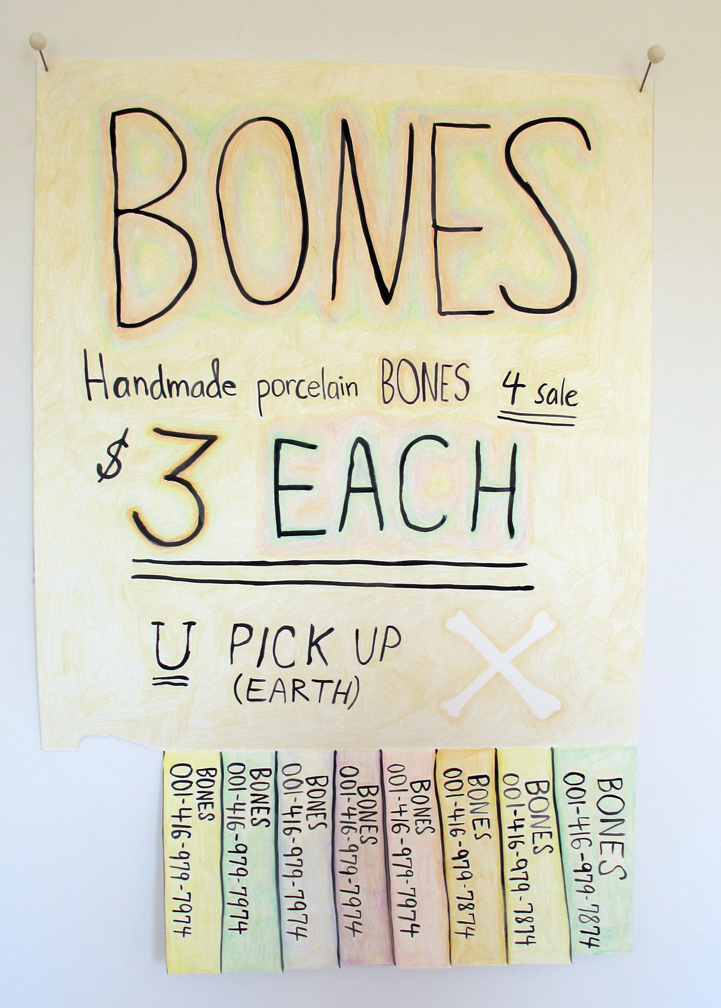 BONES
Handmade porcelain BONES 4 sale
$3 EACH
U PICK UP
(EARTH)
BONES
001-416-979-7974
BONES
001-416-979-7974
BONES
001-416-979-7974
BONES
001-416-979-7974
BONES
001-416-979-7974
BONES
001-416-979-7874
BONES
001-416-979-7874
BONES
001-416-979-7874